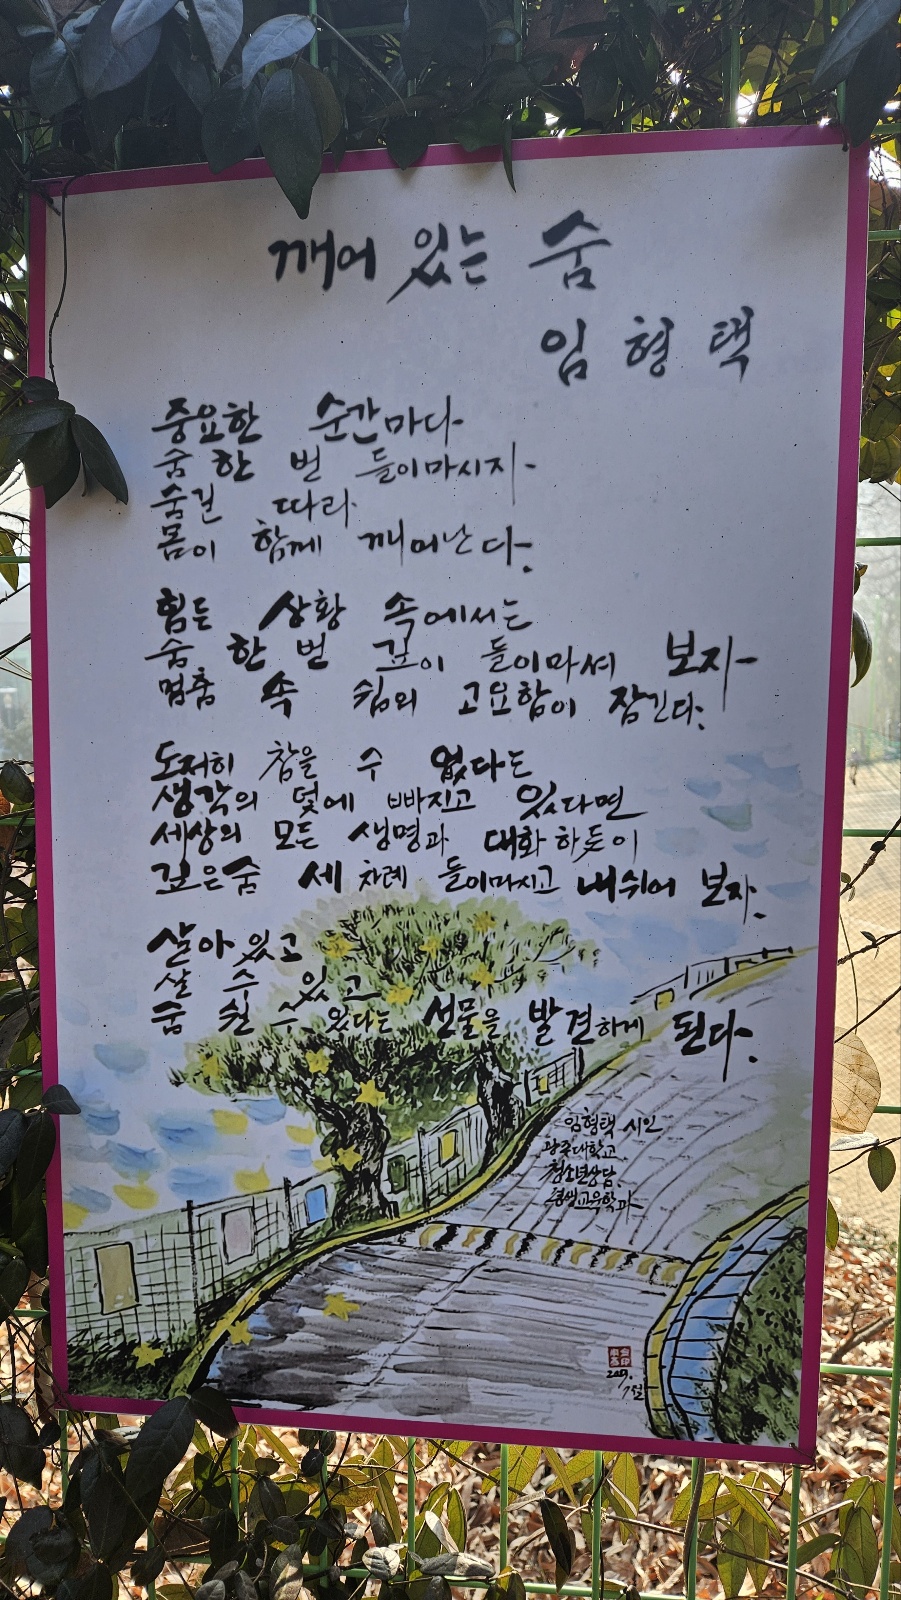 깨어 있는 숨
임 형 택
중요한 순간마다
숨 한 번 들이마시자
숨결 따라
몸이 함께 깨어난다.
힘든 상황 속에서는
숨 한 번 깊이 들이마셔 보자
멈춤 속 쉼의 고요함이 잠긴다.
도저히 참을 수 없다는
생각의 덫에 빠지고 있다면
세상의 모든 생명과 대화하듯이
깊은숨 세 차례 들이마시고 내쉬어 보자.
살아 있고
살 수 있고
숨 쉴 수 있다는 선물을 발견하게 된다.
임형택 시인
광주대학교
청소년상담.
평생교육학과
7월